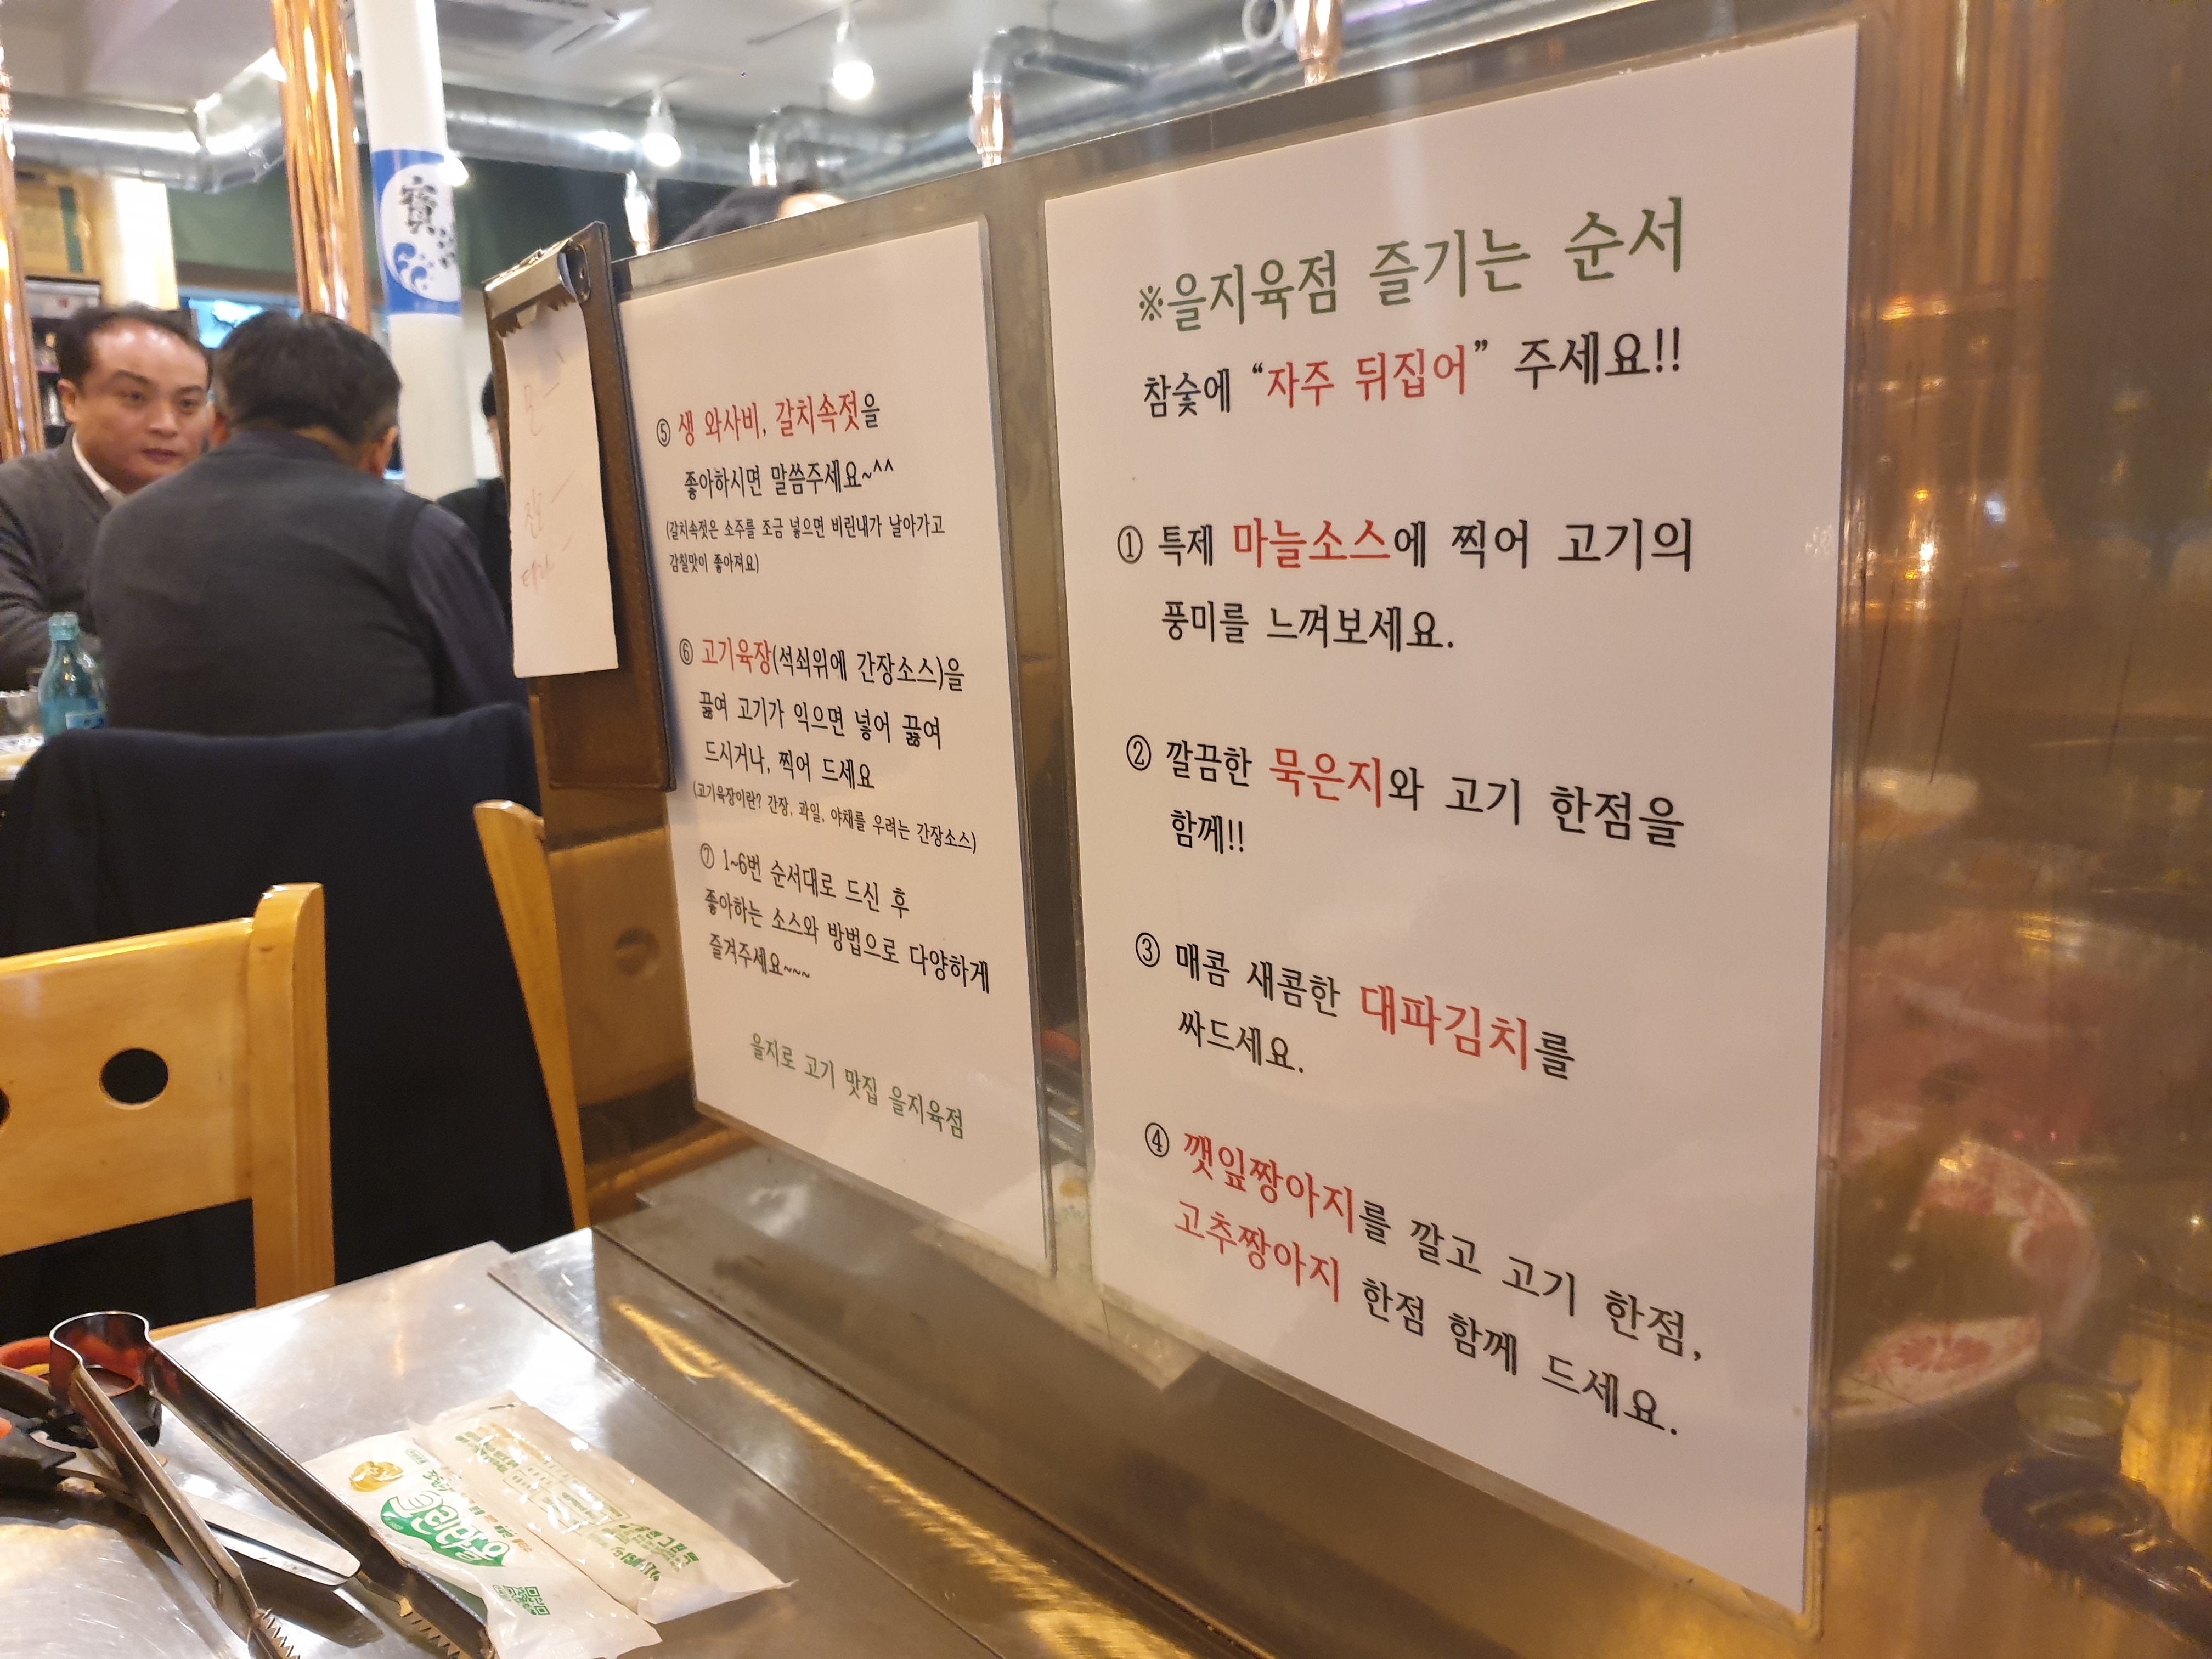 ※을지육점 즐기는 순서
참숯에 “자주 뒤집어” 주세요!!
① 특제 마늘소스에 찍어 고기의
풍미를 느껴보세요.
② 깔끔한 묵은지와 고기 한점을
함께!!
③ 매콤 새콤한 대파김치를
싸드세요.
④ 깻잎짱아지를 깔고 고기 한점,
고추짱아지 한점 함께 드세요.
⑤ 생 와사비, 갈치속젓을
좋아하시면 말씀주세요~^^
(갈치속젓은 소주를 조금 넣으면 비린내가 날아가고
감칠맛이 좋아져요)
⑥ 고기육장(석쇠위에 간장소스)을
끓여 고기가 익으면 넣어 끓여
드시거나, 찍어 드세요
(고기육장이란? 간장, 과일, 야채를 우려는 간장소스)
⑦ 1~6번 순서대로 드신 후
좋아하는 소스와 방법으로 다양하게
즐겨주세요~~~
을지로 고기 맛집 을지육점